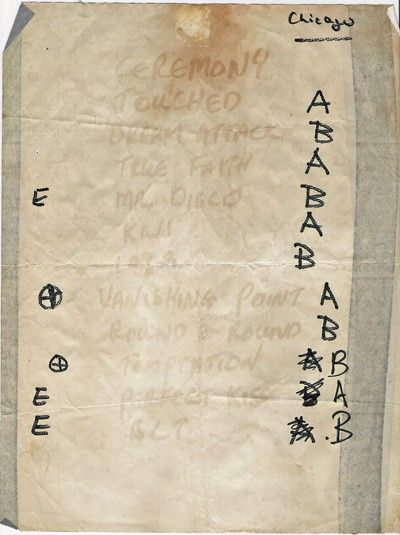 Chicago
CEREMONY
TOUCHED A
DREAM ATTACK B
TRUE FAITH A
E MR DISCO B
KW1 A
1963 B
⊕ VANISHING POINT A
ROUND & ROUND B
⊕ TEMPTATION B
E PERFECT KISS A
E BLT .B